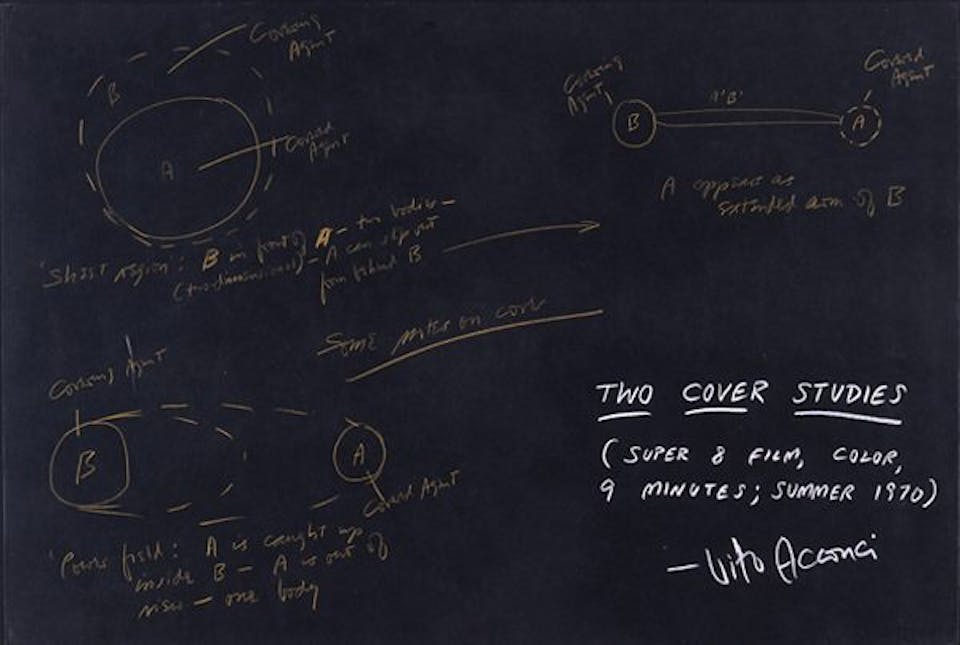 Covering
Agent
B
Covered
Agent
A
B in front of A – two bodies –
(two-dimensional) – A can slip out
from behind B
Covering
Agent
B
A'B'
Covered
Agent
A
A appears as
extended arm of B
Some notes on cover
Covering Agent
B
A
Covered Agent
'Power field: A is caught up
inside B – A is out of
view – one body
TWO COVER STUDIES
(SUPER 8 FILM, COLOR,
9 MINUTES; SUMMER 1970)
– Vito Acconci